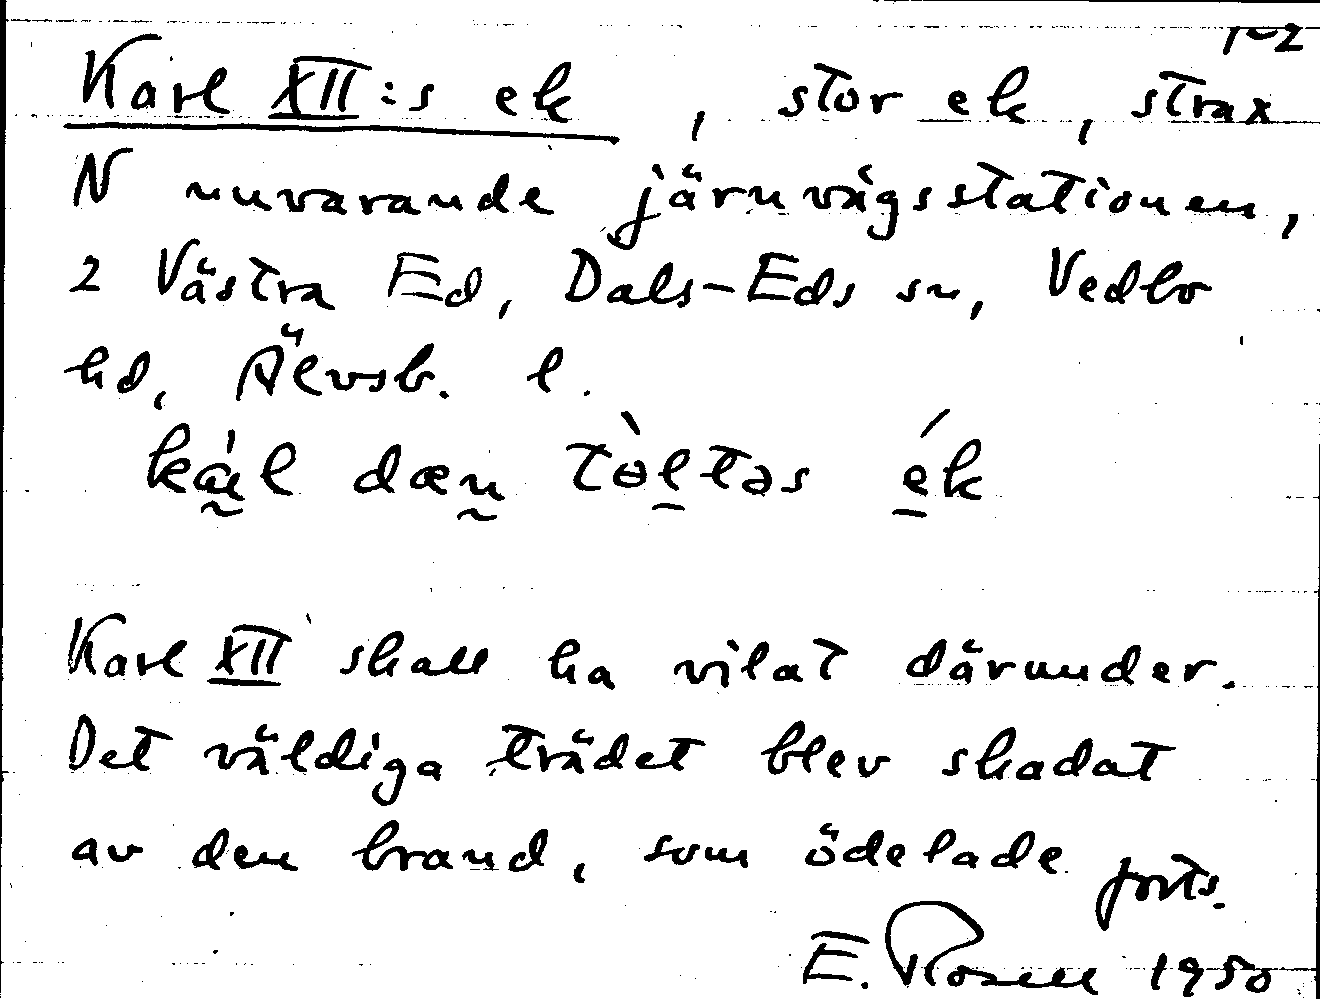 1-2
Karl XII:s ek, stor ek, strax
N nuvarande järnvägsstationen,
2 Västra Ed, Dals-Eds sn, Vedbo
hd, Älvsb. l.
ká̰l dæn̰ tòl̠təs é̠k
Karl XII skall ha vilat därunder.
Det väldiga trädet blev skadat
av den brand, som ödelade forts.
E. Rosell 1950